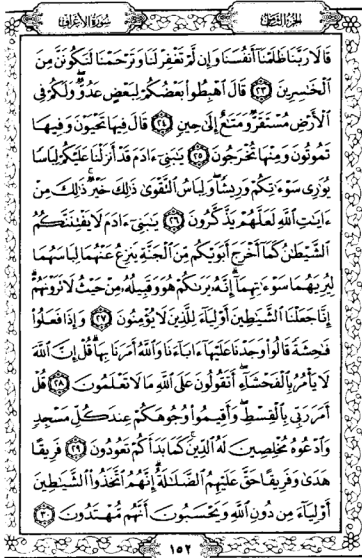 سورة الأعراف
الجزء الثامن
قَالَا رَبَّنَا ظَلَمْنَا أَنفُسَنَا وَإِن لَّمْ تَغْفِرْ لَنَا وَتَرْحَمْنَا لَنَكُونَنَّ مِنَ
ٱلْخَٰسِرِينَ ٢٣ قَالَ ٱهْبِطُوا۟ بَعْضُكُمْ لِبَعْضٍ عَدُوٌّ وَلَكُمْ فِى
ٱلْأَرْضِ مُسْتَقَرٌّ وَمَتَٰعٌ إِلَىٰ حِينٍ ٢٤ قَالَ فِيهَا تَحْيَوْنَ وَفِيهَا
تَمُوتُونَ وَمِنْهَا تُخْرَجُونَ ٢٥ يَٰبَنِىٓ ءَادَمَ قَدْ أَنزَلْنَا عَلَيْكُمْ لِبَاسًا
يُوَٰرِى سَوْءَٰتِكُمْ وَرِيشًا وَلِبَاسُ ٱلتَّقْوَىٰ ذَٰلِكَ خَيْرٌ ذَٰلِكَ مِنْ
ءَايَٰتِ ٱللَّهِ لَعَلَّهُمْ يَذَّكَّرُونَ ٢٦ يَٰبَنِىٓ ءَادَمَ لَا يَفْتِنَنَّكُمُ
ٱلشَّيْطَٰنُ كَمَآ أَخْرَجَ أَبَوَيْكُم مِّنَ ٱلْجَنَّةِ يَنزِعُ عَنْهُمَا لِبَاسَهُمَا
لِيُرِيَهُمَا سَوْءَٰتِهِمَآ إِنَّهُۥ يَرَىٰكُمْ هُوَ وَقَبِيلُهُۥ مِنْ حَيْثُ لَا تَرَوْنَهُمْ
إِنَّا جَعَلْنَا ٱلشَّيَٰطِينَ أَوْلِيَآءَ لِلَّذِينَ لَا يُؤْمِنُونَ ٢٧ وَإِذَا فَعَلُوا۟
فَٰحِشَةً قَالُوا۟ وَجَدْنَا عَلَيْهَآ ءَابَآءَنَا وَٱللَّهُ أَمَرَنَا بِهَا قُلْ إِنَّ ٱللَّهَ
لَا يَأْمُرُ بِٱلْفَحْشَآءِ أَتَقُولُونَ عَلَى ٱللَّهِ مَا لَا تَعْلَمُونَ ٢٨ قُلْ
أَمَرَ رَبِّى بِٱلْقِسْطِ وَأَقِيمُوا۟ وُجُوهَكُمْ عِندَ كُلِّ مَسْجِدٍ
وَٱدْعُوهُ مُخْلِصِينَ لَهُ ٱلدِّينَ كَمَا بَدَأَكُمْ تَعُودُونَ ٢٩ فَرِيقًا
هَدَىٰ وَفَرِيقًا حَقَّ عَلَيْهِمُ ٱلضَّلَٰلَةُ إِنَّهُمُ ٱتَّخَذُوا۟ ٱلشَّيَٰطِينَ
أَوْلِيَآءَ مِن دُونِ ٱللَّهِ وَيَحْسَبُونَ أَنَّهُم مُّهْتَدُونَ ٣٠
١٥٢